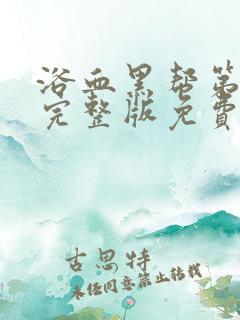 浴血黑帮第
完整版免費
古思特
未经同意禁止转载